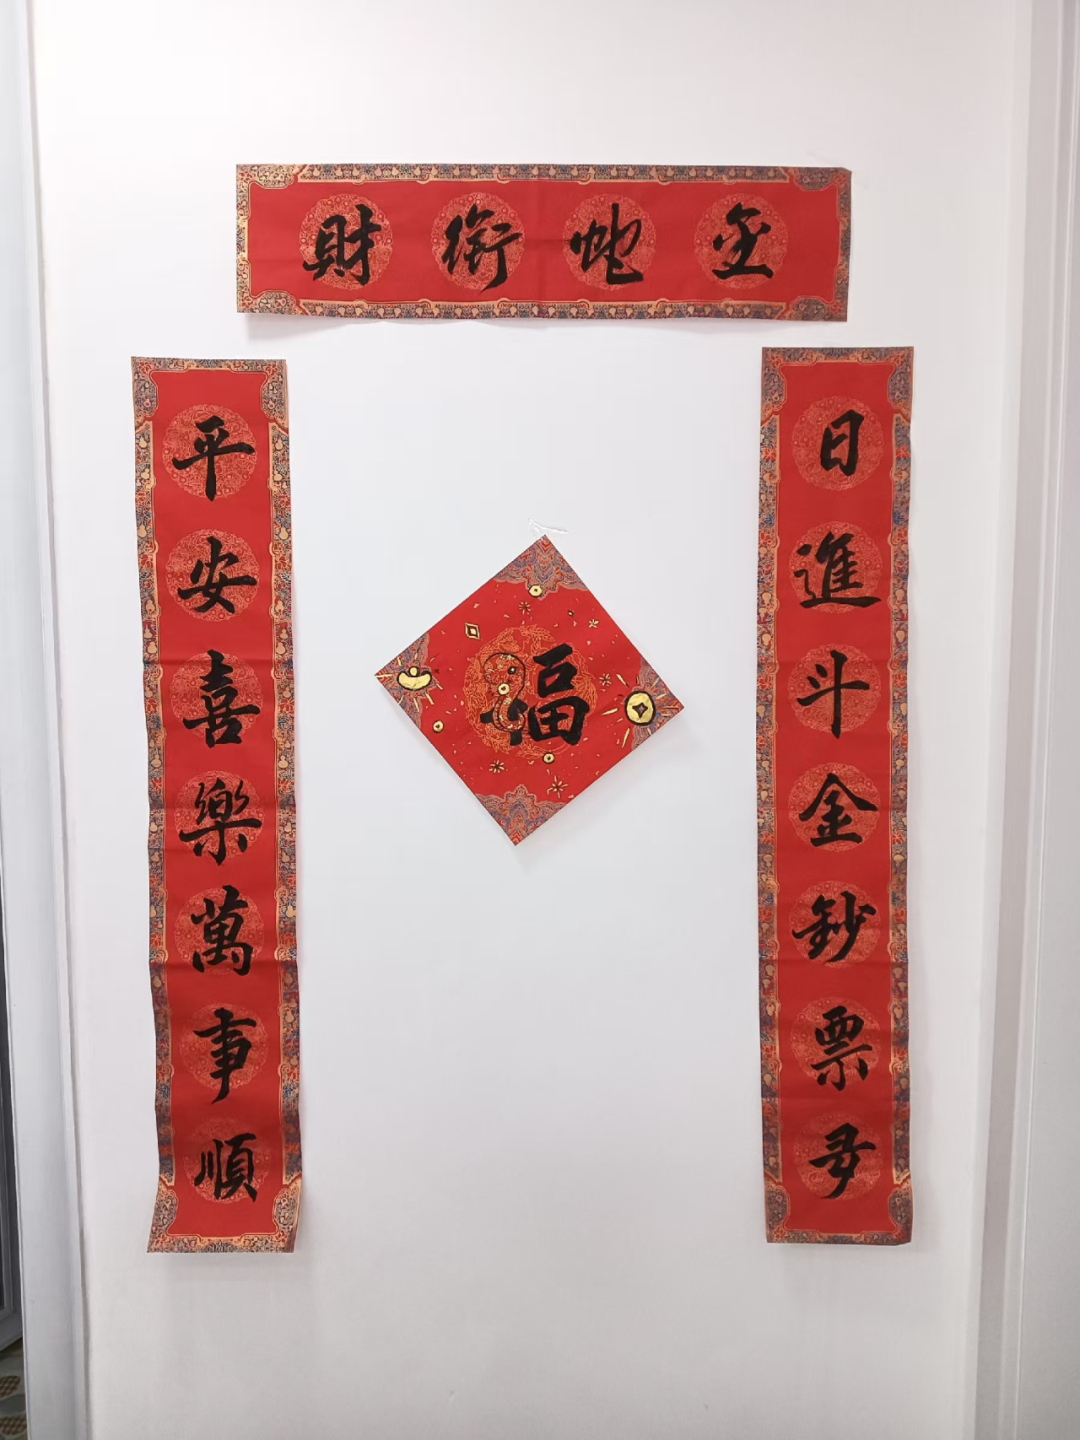 金蛇銜財
日進斗金鈔票多
平安喜樂萬事順
福